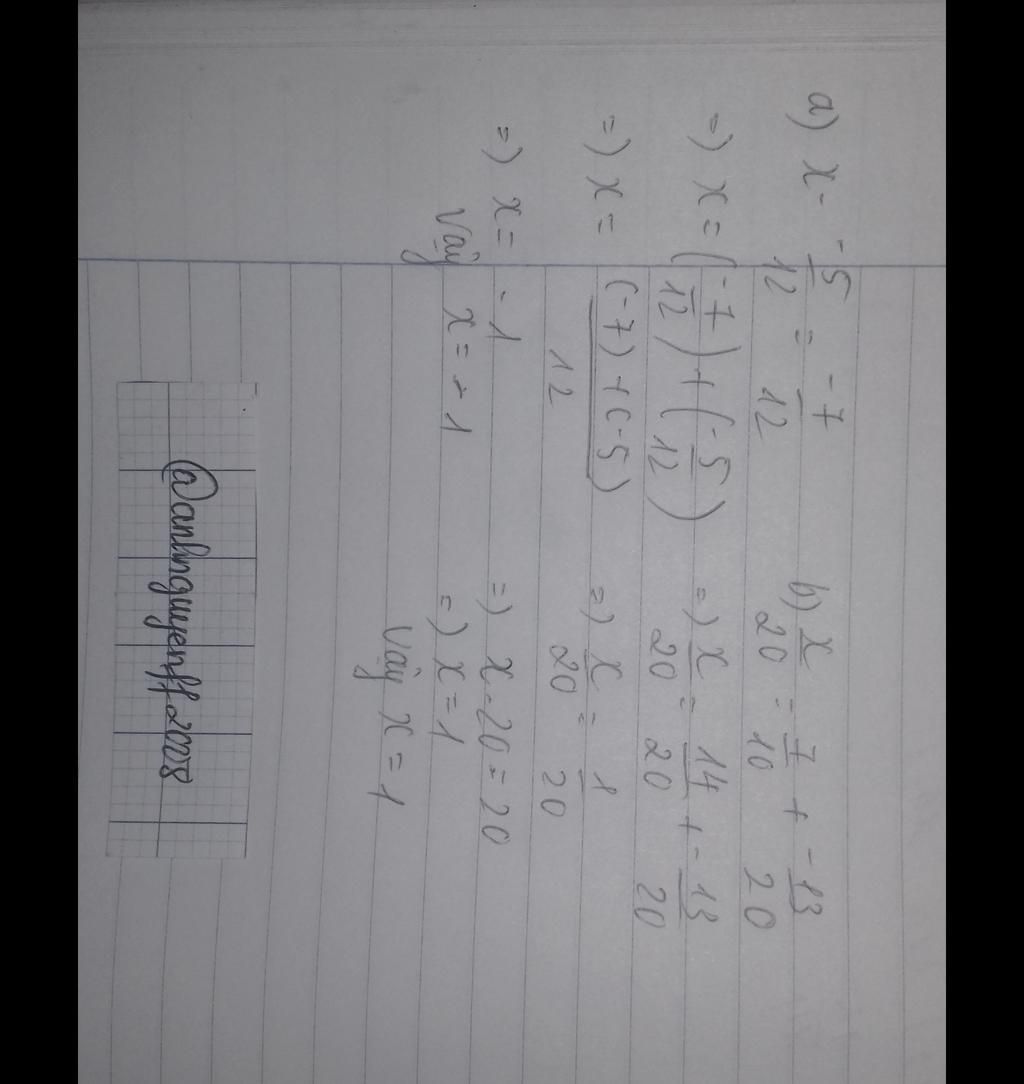 a) x - -5/12 = -7/12
=) x = (-7/12) + (-5/12)
=) x = (-7) + (-5)/12
=) x = -1
Vậy x = -1
b) x/20 = 7/10 + -13/20
=) x/20 = 14/20 + -13/20
=) x/20 = 1/20
=) x.20 = 20
=) x = 1
Vậy x = 1
@vanhnguyenff2008